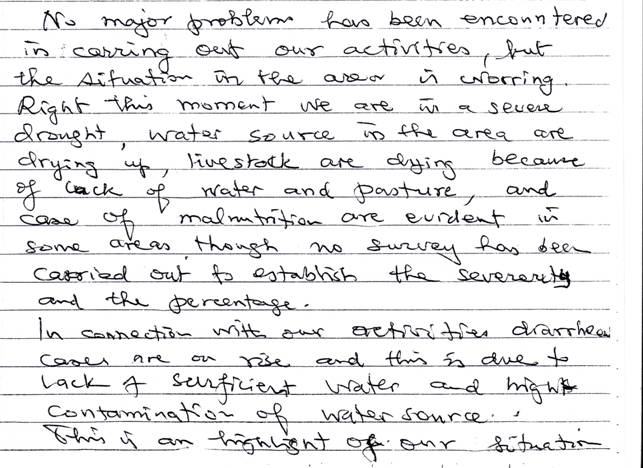 No major problem has been encountered
in carring out our activities, but
the situation in the area is worring.
Right this moment we are in a severe
drought, water source in the area are
drying up, livestock are dying because
of lack of water and pasture, and
case of malnutrition are evident in
some areas though no survey has been
carried out to establish the severerity
and the percentage.
In connection with our activities diarrhea
cases are on rise and this is due to
lack of sufficient water and high
contamination of water source.
This is an highlight of our situation